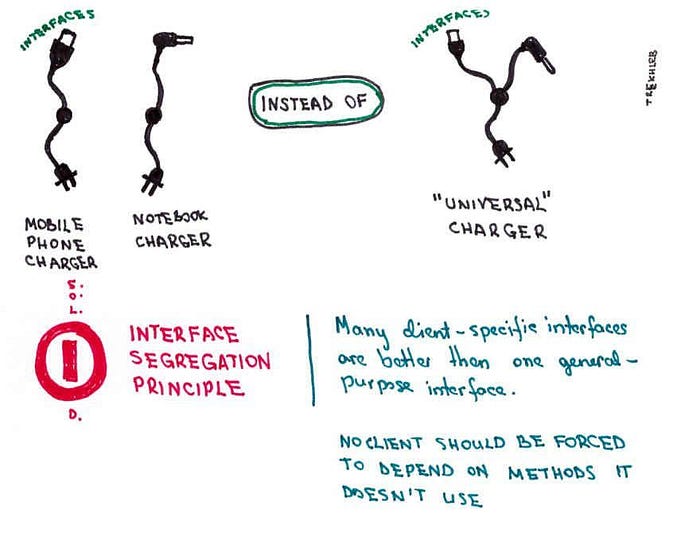 INTERFACES
INTERFACES
INSTEAD OF
TREKHLEB
MOBILE
PHONE
CHARGER
NOTEBOOK
CHARGER
"UNIVERSAL"
CHARGER
S.
O.
L.
I
D.
INTERFACE
SEGREGATION
PRINCIPLE
Many client-specific interfaces
are better than one general-
purpose interface.
NO CLIENT SHOULD BE FORCED
TO DEPEND ON METHODS IT
DOESN'T USE